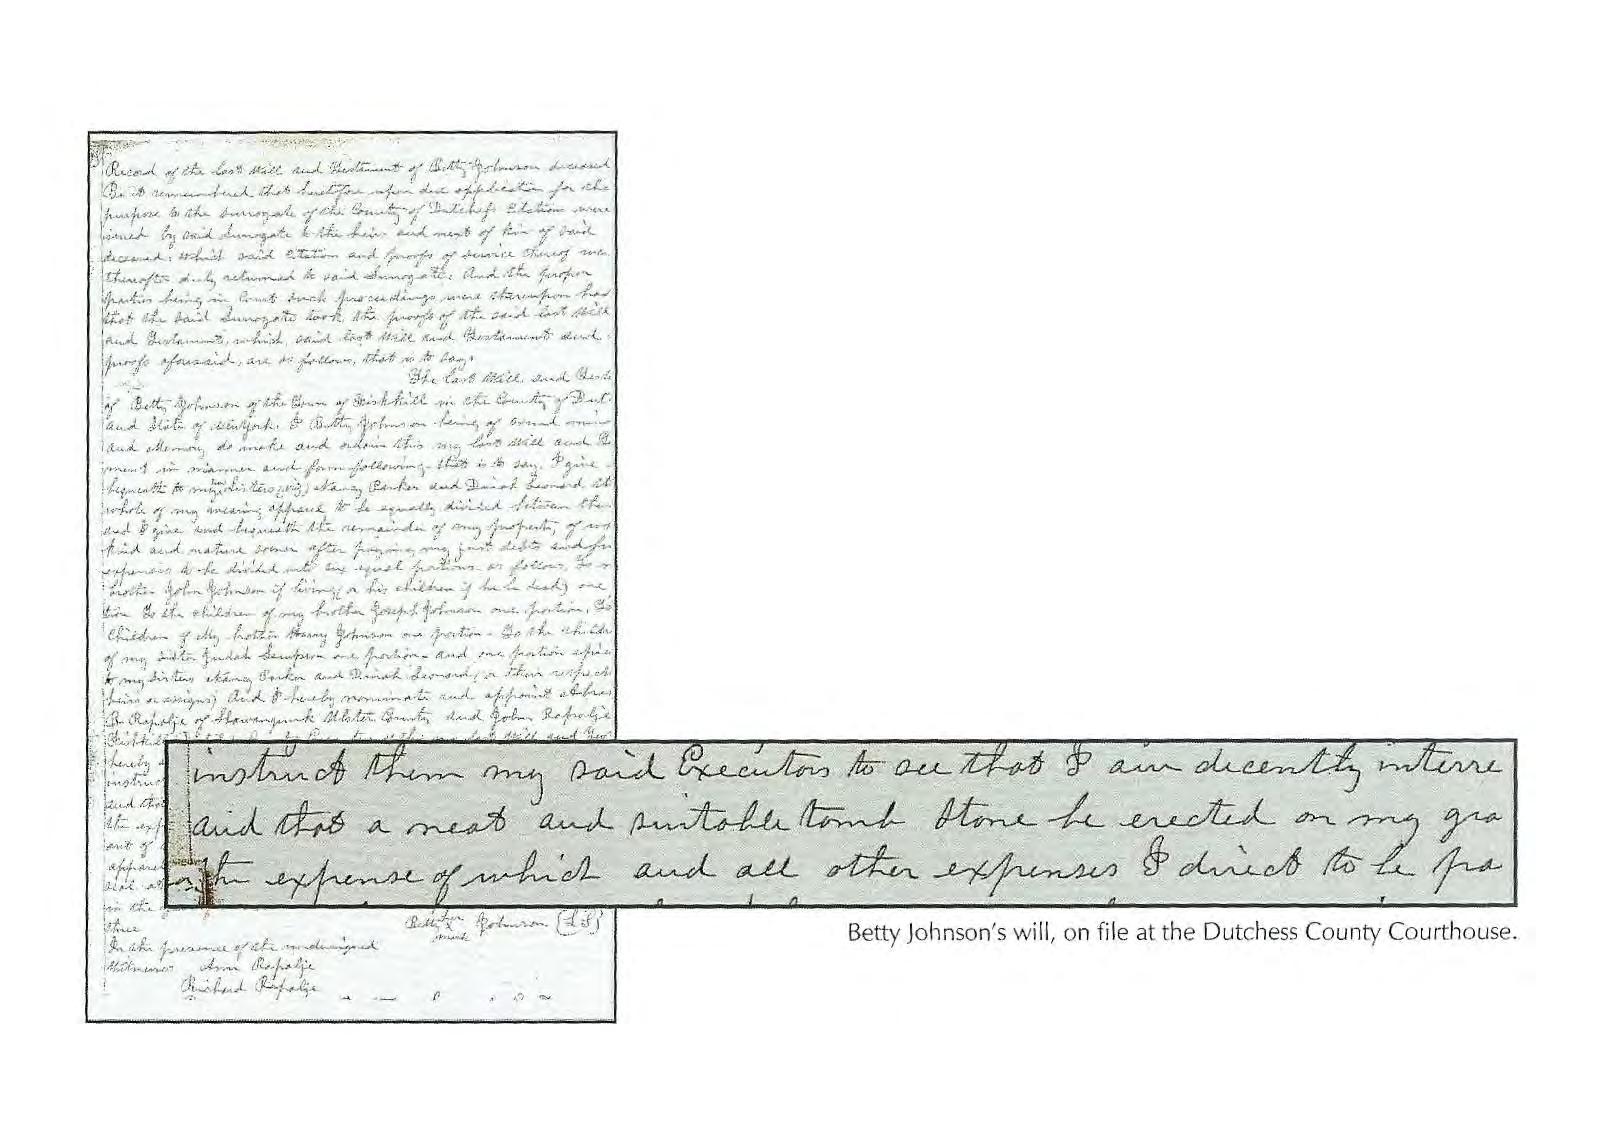 Record of the last Will and Testament of Betty Johnson deceased
Be it remembered that heretofore upon due application for the
purpose to the Surrogate of the County of Dutchess Citation were
issued by said Surrogate to the heirs and next of kin of said
deceased; which said Citation and proofs of service thereof were
thereafter duly returned to said Surrogate; And the proper
parties being in Court such proceedings were thereupon had
that the said Surrogate took the proofs of the said last Will
and Testament, which said last Will and Testament and
proofs aforesaid, are as follows, that is to say.
The last Will and Test
of Betty Johnson of the Town of Fishkill in the County of Dut
and State of New York. I Betty Johnson being of sound min
and Memory do make and ordain this my last Will and Te
ment in manner and form following that is to say. I give
bequeath to my two sisters (viz) Nancy Parker and Dinah Leonard
whole of my wearing apparel to be equally divided between them
and I give and bequeath the remainder of my property of
kind and nature soever after paying my just debts and fu
expenses to be divided into six equal portions as follows, To
brother John Johnson if living (or his children if he be dead) one
tion To the children of my brother Joseph Johnson one portion, To
Children of My brother Harry Johnson one portion - To the childr
of my sister Judah Sampson one portion - and one portion apiece
to my sisters Nancy Parker and Dinah Leonard (or their respect
heirs or assigns) And I hereby nominate and appoint Abra
B. Rapalje of Shawangunk Ulster County and John Rapalje
hereby
instruc
and tha
the exp
out of
appare
seal
in the
three
instruct them my said Executors to see that I am decently interre
and that a neat and suitable tomb stone be erected on my gra
the expense of which and all other expenses I direct to be pa
Betty her x mark Johnson {LS}
In the presence of the undersigned
Witnesses Ann Rapalje
Richard Rapalje
Betty Johnson's will, on file at the Dutchess County Courthouse.